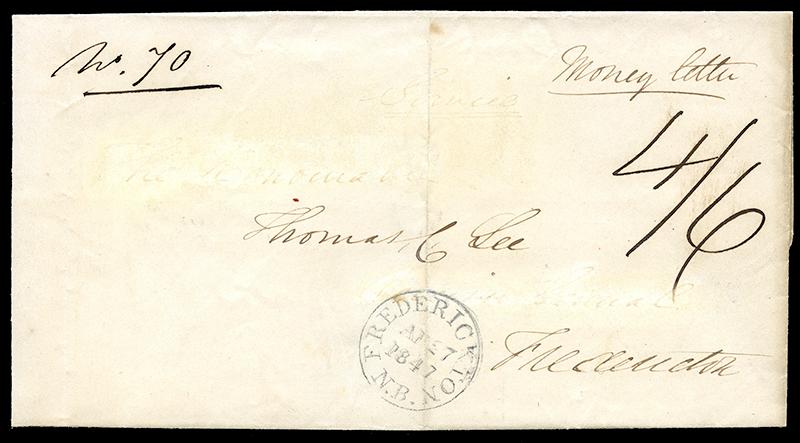 No. 70
Money letter
Service
The Honourable
4/6
Thomas C Lee
General
Fredericton
FREDERICKTON
AP 27
1847
N.B.